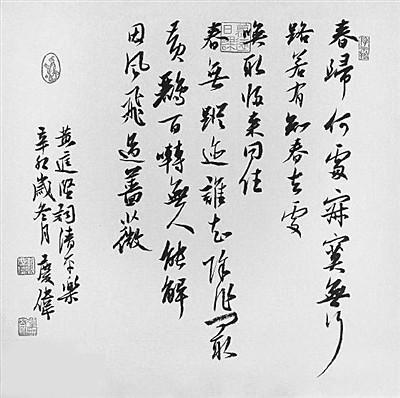 春歸何處寂寞無行
路若有知春去處
喚取歸來同住
春無蹤迹誰知除非問取
黃鸝百囀無人能解
因風飛過薔薇
黃庭堅詞清平樂
辛卯歲冬月 慶偉